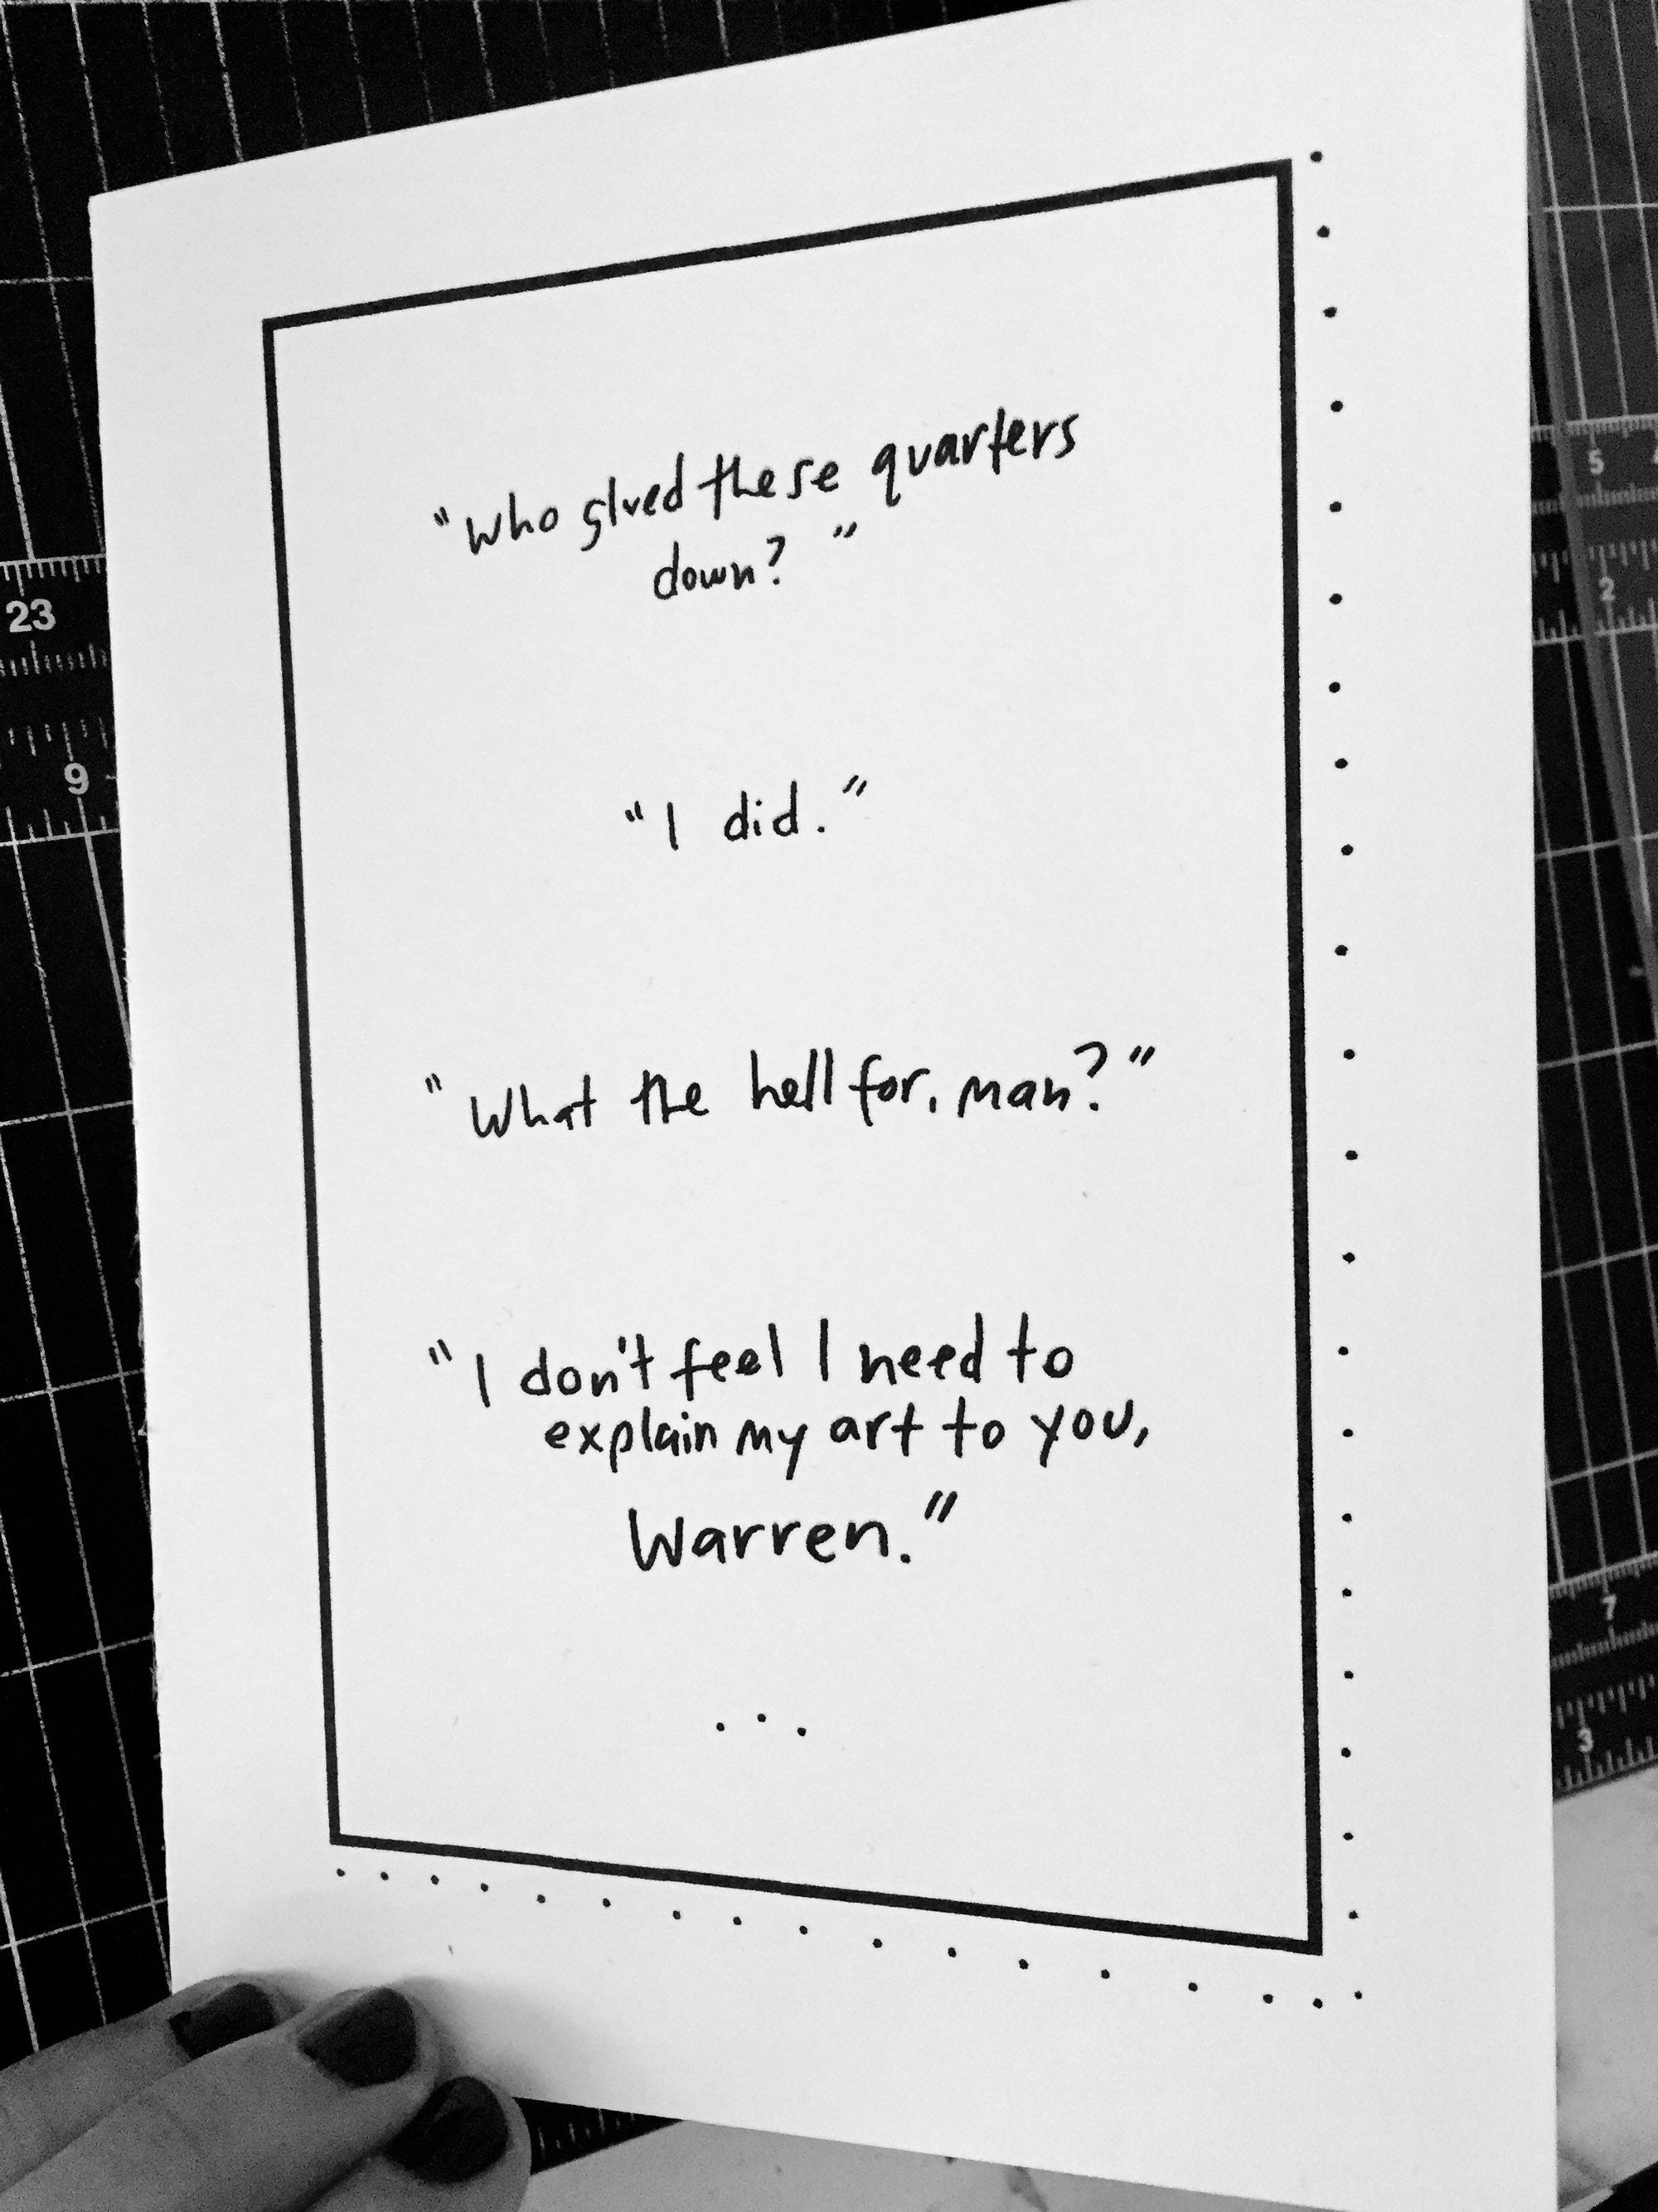 "Who glued these quarters
down?"
"I did."
"What the hell for, man?"
"I don't feel I need to
explain my art to you,
Warren."
...
23
9
5
2
7
3